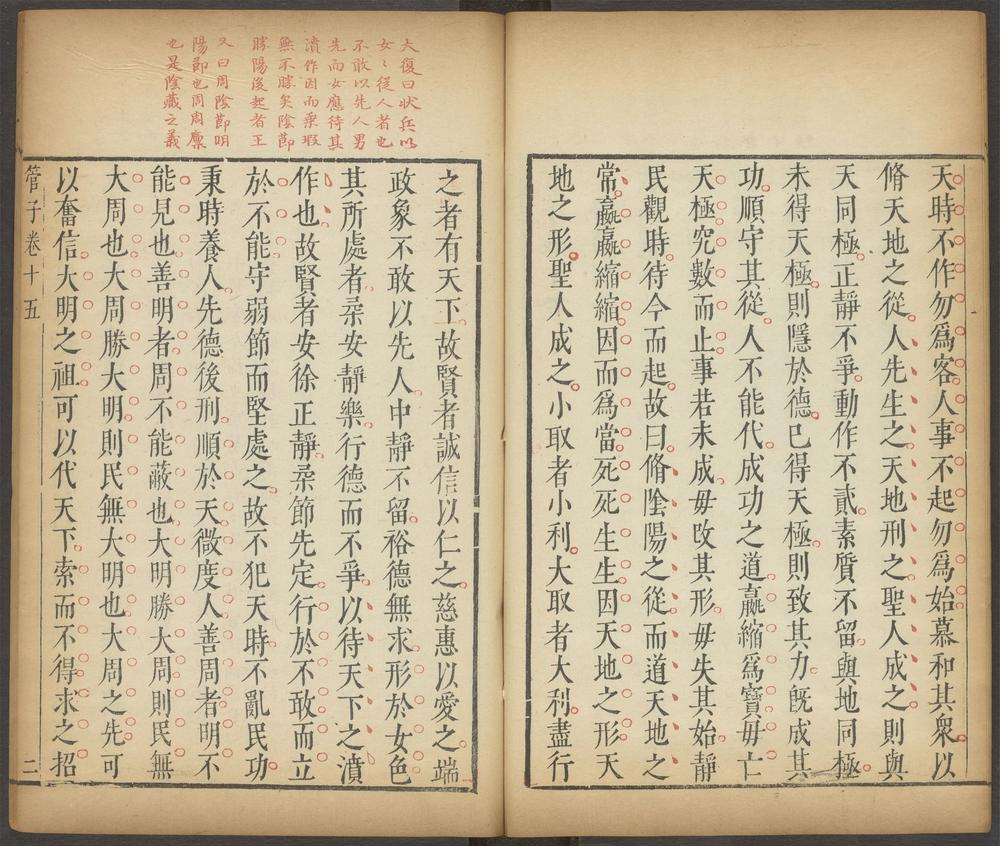 天時不作勿爲客人事不起勿爲始慕和其衆以
脩天地之從人先生之天地刑之聖人成之則與
天同極正靜不爭動作不貳素質不留與地同極
未得天極則隱於德已得天極則致其力旣成其
功順守其從人不能代成功之道嬴縮爲寳毋亡
天極究數而止事若未成毋攺其形毋失其始靜
民觀時待令而起故曰脩陰陽之從而道天地之
常嬴嬴縮縮因而爲當死死生生因天地之形天
地之形聖人成之小取者小利大取者大利盡行
大復曰狀兵以
女〻從人者也
不敢以先人男
先而女應待其
濆作因而乗瑕
無不勝矣陰節
勝陽後起者王
又曰周陰節明
陽節也周周麇
也是陰藏之義
之者有天下故賢者誠信以仁之慈惠以愛之端
政象不敢以先人中靜不留裕德無求形於女色
其所處者柔安靜樂行德而不爭以待天下之濆
作也故賢者安徐正靜柔節先定行於不敢而立
於不能守弱節而堅處之故不犯天時不亂民功
秉時養人先德後刑順於天微度人善周者明不
能見也善明者周不能蔽也大明勝大周則民無
大周也大周勝大明則民無大明也大周之先可
以奮信大明之祖可以代天下索而不得求之招
管子卷十五
二